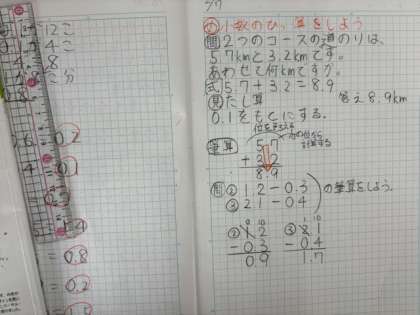 12こ
4こ
4.8
こ分
0.2
0.1
= 0.8
= 0.2
小数のひっ算をしよう
問 2つのコースの道のりは、
5.7kmと3.2kmです。
あわせて何kmですか。
式 5.7+3.2=8.9
見 たし算 答え8.9km
0.1をもとにする。
位をそろえる
筆算 5.7
+3.2
8.9
問② 1.2-0.3
③ 2.1-0.4
の筆算をしよう。
② 1.2 ③ 2.1
-0.3 -0.4
0.9 1.7